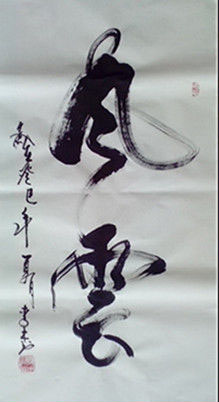 風雲
歲在癸巳年夏月